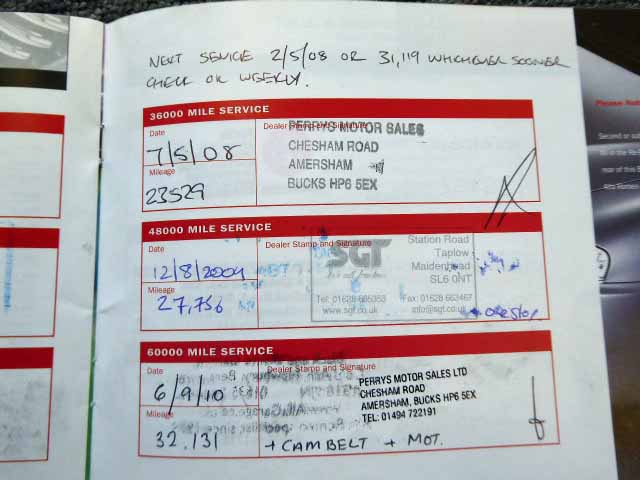 NEXT SERVICE 2/5/08 OR 31,119 WHICHEVER SOONER
CHECK OIL WEEKLY.
36000 MILE SERVICE
Date
Dealer Stamp and Signature
7/5/08
PERRYS MOTOR SALES
CHESHAM ROAD
AMERSHAM
BUCKS HP6 5EX
Mileage
23529
48000 MILE SERVICE
Date
Dealer Stamp and Signature
12/8/2009
SGT
Station Road
Taplow
Maidenhead
SL6 0NT
Mileage
27,756
Tel: 01628 605353
Fax: 01628 663467
www.sgt.co.uk
info@sgt.co.uk
60000 MILE SERVICE
Date
Dealer Stamp and Signature
6/9/10
PERRYS MOTOR SALES LTD
CHESHAM ROAD
AMERSHAM, BUCKS HP6 5EX
TEL: 01494 722191
Mileage
32.131
+ CAMBELT + MOT.
Please Not
Second or sub
rear of this B
Alfa Romeo